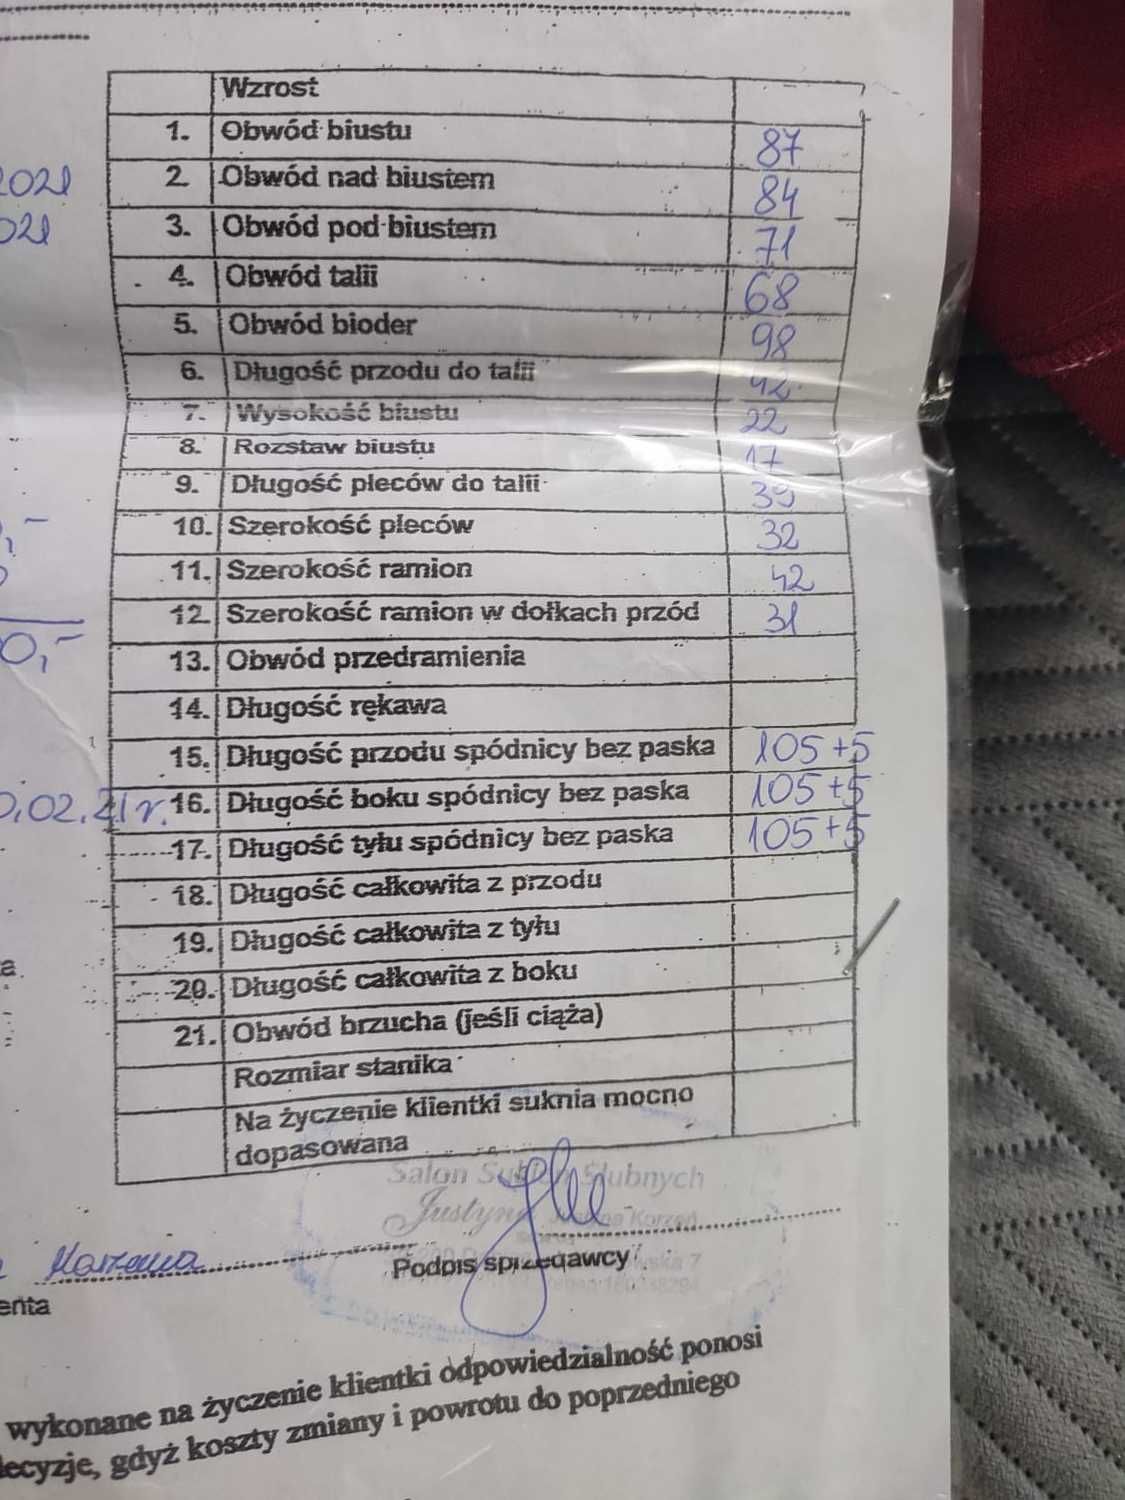 Wzrost
1. Obwód biustu 87
2021
2. Obwód nad biustem 84
021
3. Obwód pod biustem 71
4. Obwód talii 68
5. Obwód bioder 98
6. Długość przodu do talii 42
7. Wysokość biustu 22
8. Rozstaw biustu 17
9. Długość pleców do talii 39
10. Szerokość pleców 32
11. Szerokość ramion 42
12. Szerokość ramion w dołkach przód 31
0,-
13. Obwód przedramienia
14. Długość rękawa
15. Długość przodu spódnicy bez paska 105 +5
0.02.21r. 16. Długość boku spódnicy bez paska 105 +5
17. Długość tyłu spódnicy bez paska 105 +5
18. Długość całkowita z przodu
19. Długość całkowita z tyłu
a
20. Długość całkowita z boku
21. Obwód brzucha (jeśli ciąża)
Rozmiar stanika
Na życzenie klientki suknia mocno
dopasowana
Salon Sukien Ślubnych
Justyna Justyna Korzeń
Podpis sprzedawcy
enta
wykonane na życzenie klientki odpowiedzialność ponosi
decyzje, gdyż koszty zmiany i powrotu do poprzedniego